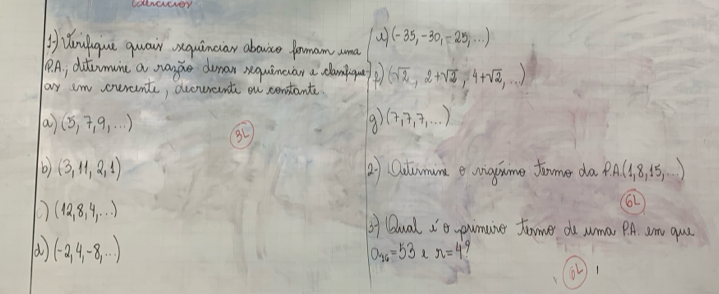 Exercícios
1-) Verifique quais sequências abaixo formam uma
P.A, determine a razão dessas sequências e classifique
as em crescente, decrescente ou constante.
a) (5, 7, 9, ...)
3L
b) (3, 11, 2, 1)
c) (12, 8, 4, ...)
d) (-2, 4, -8, ...)
e) (-35, -30, -25, ...)
f) (√2, 2+√2, 4+√2, ...)
g) (7, 7, 7, ...)
2-) Determine o vigésimo termo da P.A (1, 8, 15, ...)
6L
3-) Qual é o primeiro termo de uma P.A. em que
a₂₆ = 53 e r = 4?
6L